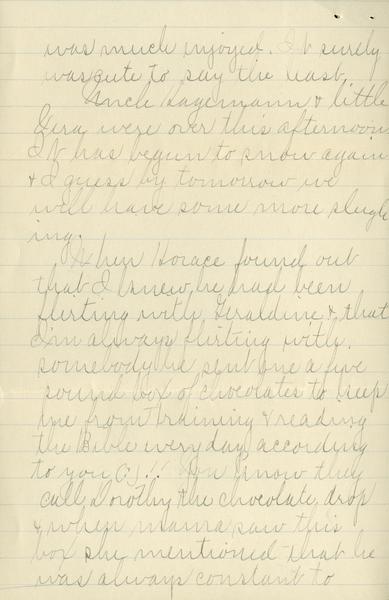 was much injoyed. It surely
was cute to say the least.
Uncle Hagemann & little
Gera were over this afternoon
It has begun to snow again
& I guess by tomorrow we
will have some more sleigh
ing.
When Horace found out
that I knew he had been
flirting with Geraldine & that
I'm always flirting with
somebody he sent me a five
pound box of chocolates to keep
me from training & reading
the Bible every day according
to you C!!! You know they
call Dorothy the chocolate drop
& when mama saw this
box she mentioned that he
was always constant to